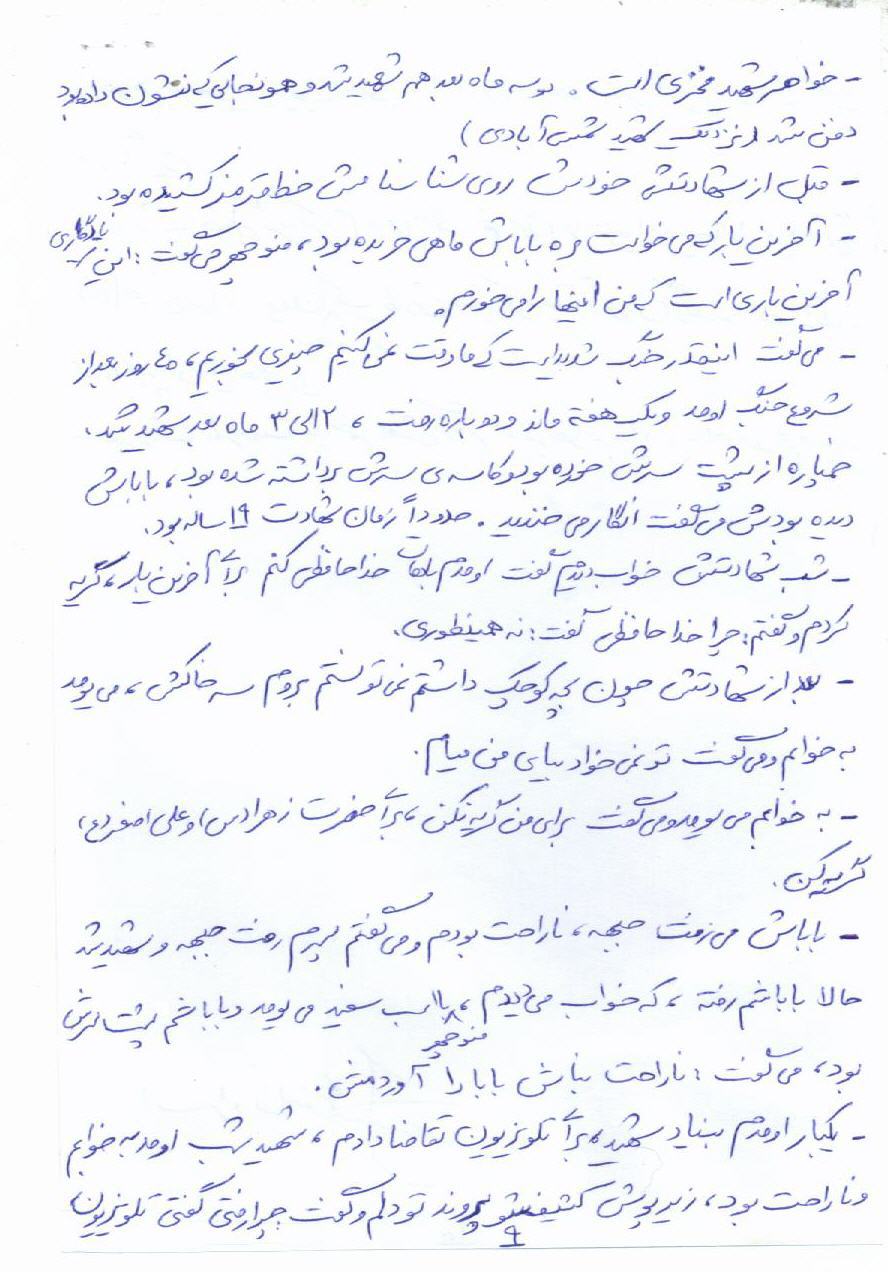 - خواهر شهید مخبری است. دو سه ماه بعد هم شهید شد و همونجایی که نشون داده بود
دفن شد (نزدیک شهید شمس آبادی)
- قبل از شهادتش خودش روی شناسنامش خط قرمز کشیده بود.
- آخرین بار که می خواست بره باباش ماهی خریده بود، منوچهر می گفت: این یادگاری
آخرین باری است که من اینها را می خورم.
- می گفت اینقدر جنگ شدید است که ما وقت نمی کنیم چیزی بخوریم، ۴۵ روز بعد از
شروع جنگ اومد و یک هفته ماند و دوباره رفت، ۲ الی ۳ ماه بعد شهید شد.
خمپاره از پشت سرش خورده بود و کاسه ی سرش برداشته شده بود، باباش
دیده بودش می گفت انگار می خندید. حدوداً زمان شهادت ۱۹ ساله بود.
- شب شهادتش خواب دیدم گفت اومدم باهات خداحافظی کنم برای آخرین بار، گریه
کردم و گفتم: چرا خداحافظی گفت: نه همینطوری.
- بعد از شهادتش چون بچه کوچیک داشتم نمی تونستم بروم سر خاکش، می یومد
به خوابم و می گفت تو نمی خواد بیای من میام.
- به خوابم می یومد و می گفت برای من گریه نکن، برای حضرت زهرا (س) و علی اصغر (ع)
گریه کن.
- باباش می رفت جبهه، ناراحت بودم و می گفتم پسرم رفت جبهه و شهید شد
حالا باباشم رفته، که خواب می دیدم، منوچهر با اسب سفید می یومد و باباشم پشت سرش
بود، می گفت: ناراحت نباش بابا را آوردمش.
- یکبار اومدم بنیاد شهید، برای تلویزیون تقاضا دادم، شهید شب اومد به خوابم
و ناراحت بود، زیرپوش کثیفشو پروند تو دلم و گفت چرا رفتی گفتی تلویزیون
۹